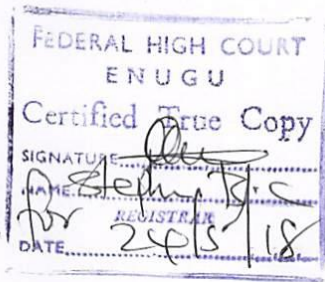 FEDERAL HIGH COURT
ENUGU
Certified True Copy
SIGNATURE
NAME Stephen
for REGISTRAR
DATE 24/5/18